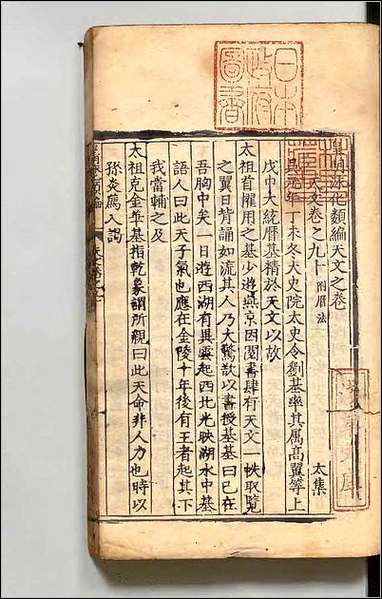 日本
政府
圖書
皇明泳化類編天文之卷
天文卷之九十 附曆法
太集
吳元年丁未冬太史院太史令劉基率其属高翼等上
戊申大統曆基精於天文以故
太祖首擢用之基少遊燕京因閱書肆有天文一帙取覧
之翼日皆誦如流其人乃大驚欲以書授基基曰已在
吾胸中矣一日遊西湖有異雲起西北光映湖水中基
語人曰此天子氣也應在金陵十年後有王者起其下
我當輔之及
太祖克金華基指乾象謂所親曰此天命非人力也時以
孫炎薦入詢